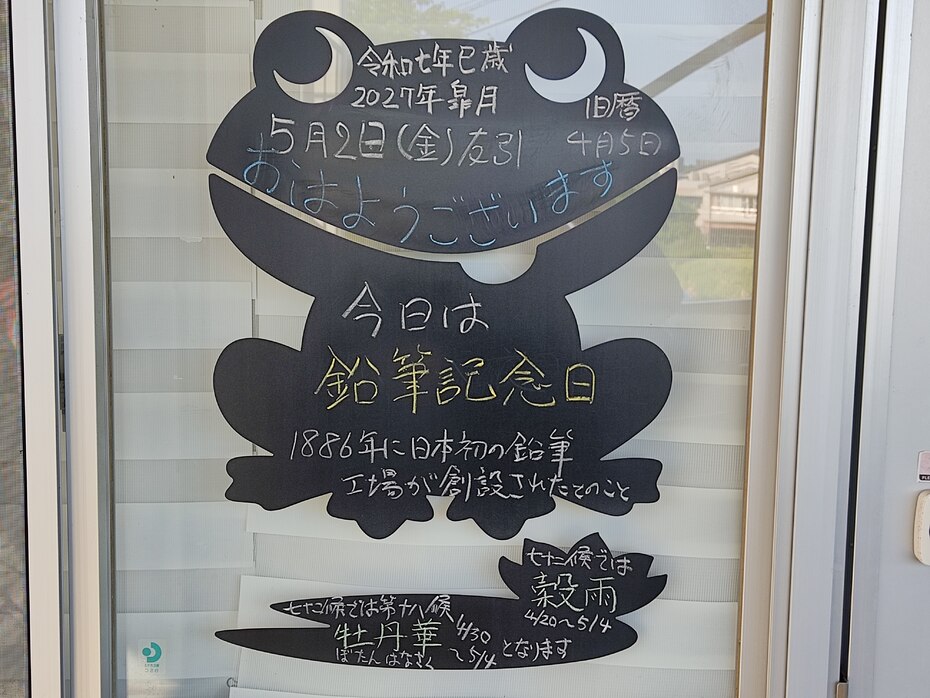 令和七年巳歳
2027年 皐月
旧暦
5月2日(金)友引
4月5日
おはようございます
今日は
鉛筆記念日
1886年に日本初の鉛筆
工場が創設されたとのこと
七十二候では
穀雨
4/20〜5/4
七十二候では第十八候
牡丹華
ぼたんはなさく
4/30
〜5/4
となります